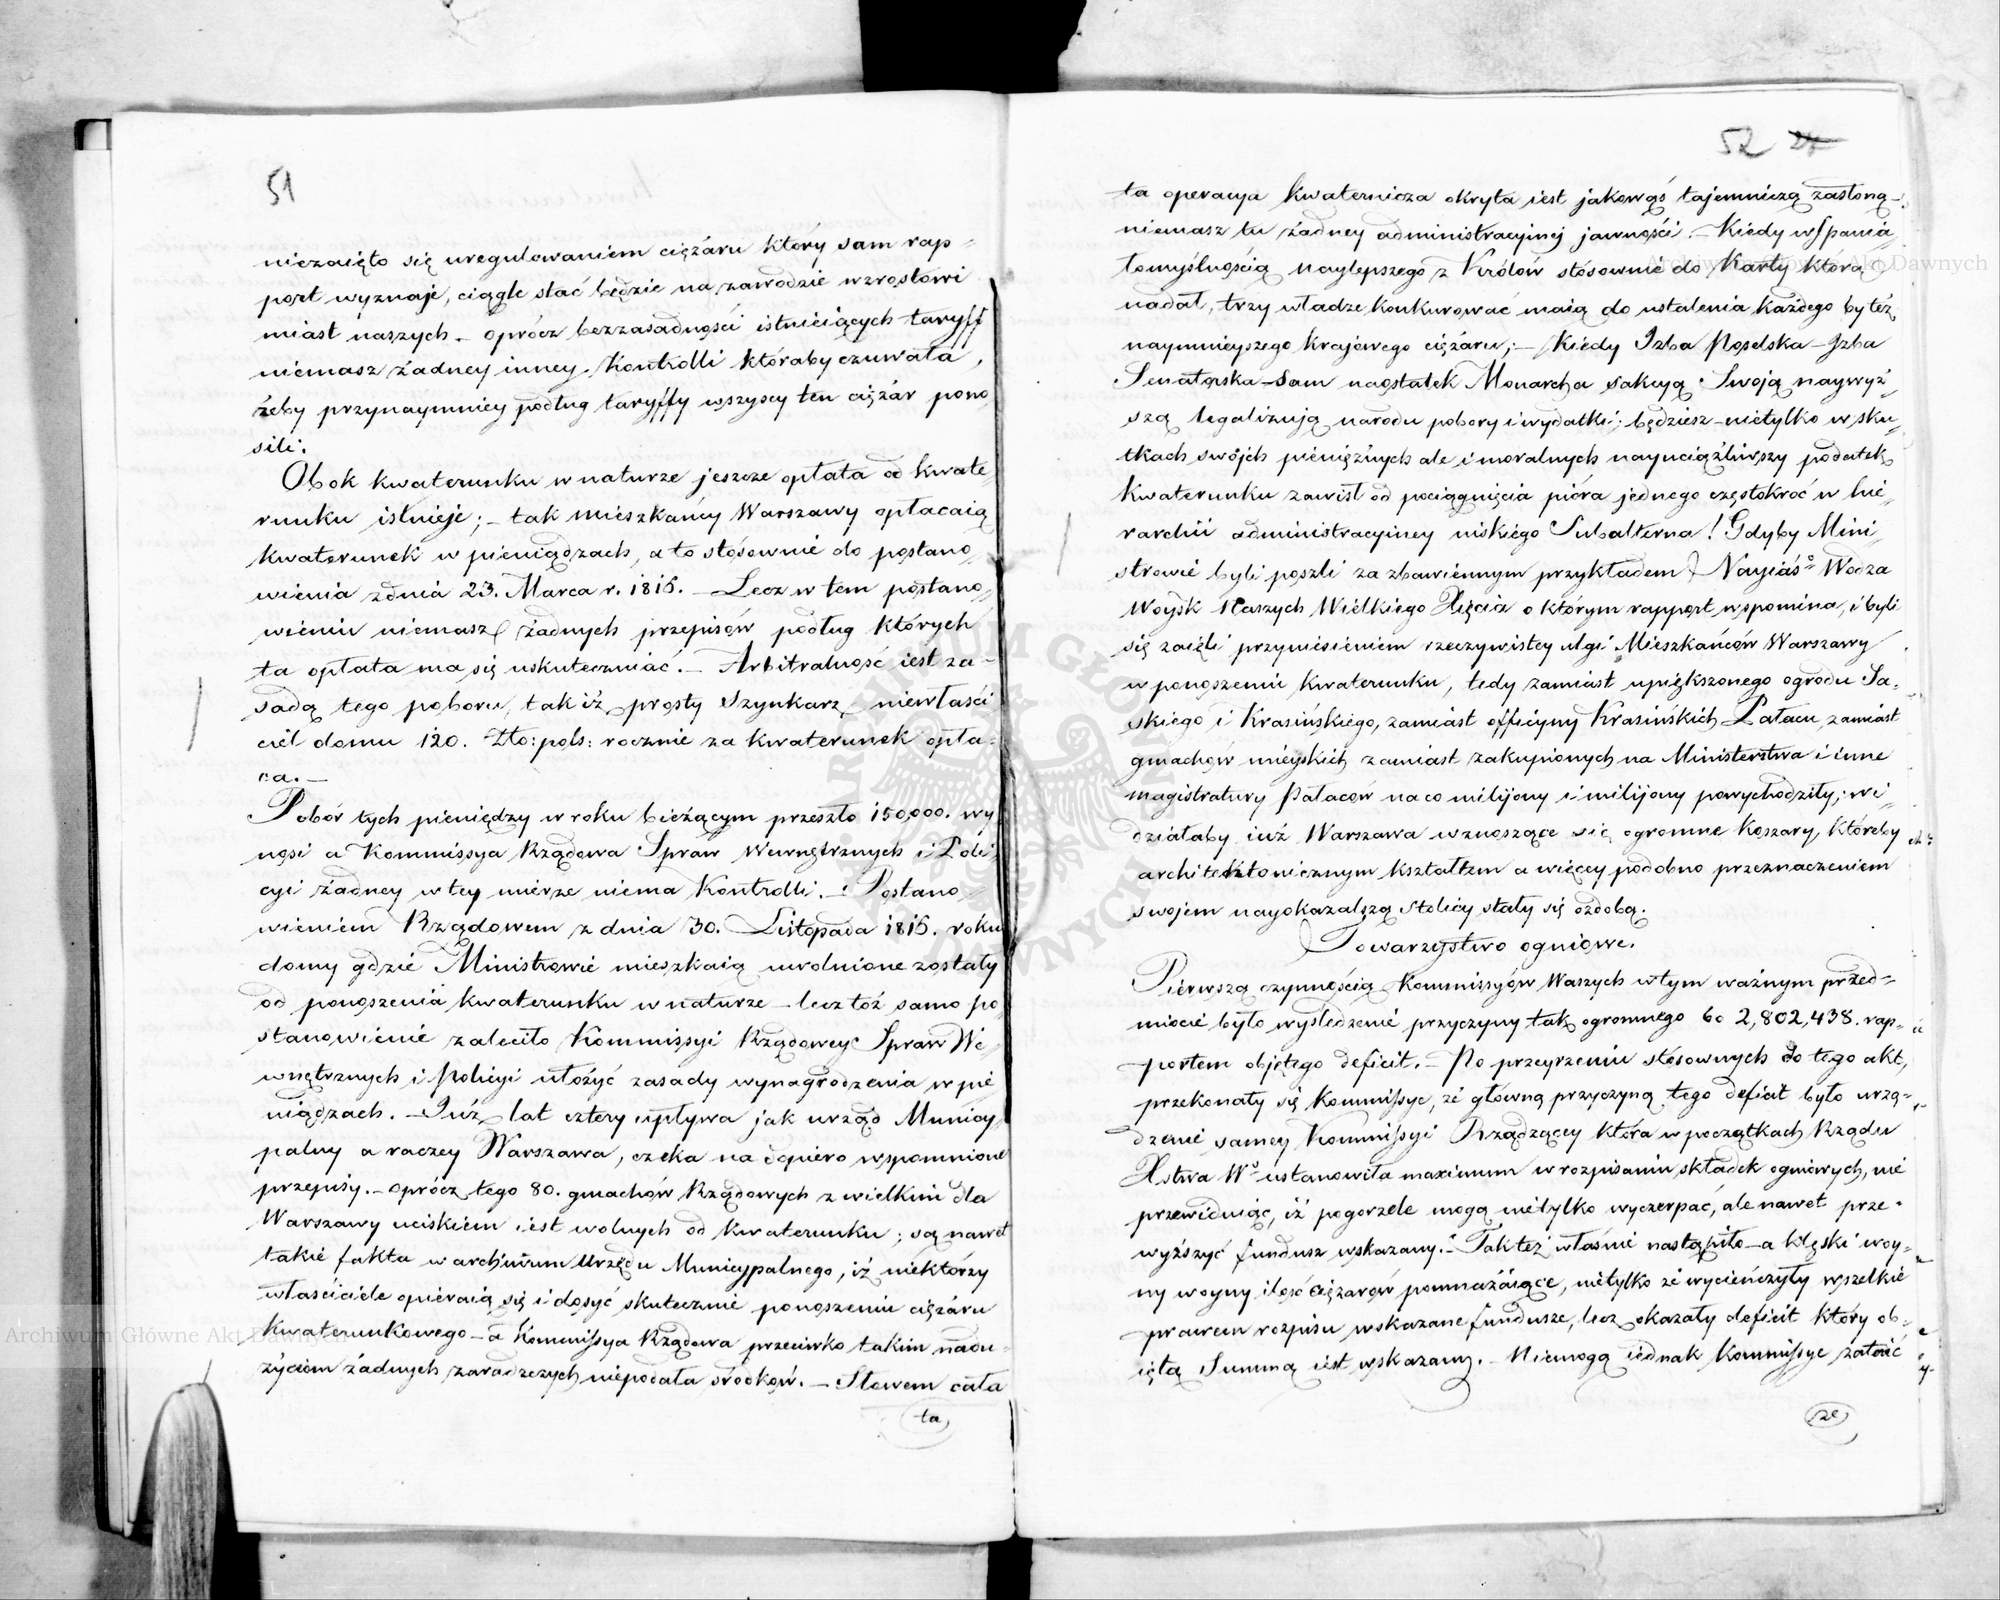 51
niezaięto się uregulowaniem ciężaru który sam rap„
port wyznaje, ciągle stać będzie na zawodzie wzrostowi
miast naszych. oprócz bezzasadności istnieiących taryff
niemasz żadney inney Kontrolli któraby czuwała,
żeby przynaymniey podług taryffy wszyscy ten ciężar pono„
sili.
Obok kwaterunku w naturze jeszcze opłata od kwate„
runku istnieje; – tak mieszkańcy Warszawy opłacaią
kwaterunek w pieniądzach, a to stósownie do postano„
wienia z dnia 23. Marca r. 1816. – Lecz w tem postano„
wieniu niemasz żadnych przepisów podług których
ta opłata ma się uskuteczniać. – Arbitralność iest za-
sadą tego poboru, tak iż prosty szynkarz niewłaści
ciel domu 120. Zło: pols: rocznie za kwaterunek opła-
ca. –
Pobór tych pieniędzy w roku bieżącym przeszło 150,000. wy
nosi a Kommissya Rządowa Spraw Wewnętrznych i Poli„
cyi żadney w tey mierze niema Kontrolli. – Postano„
wieniem Rządowem z dnia 30. Listopada 1816. roku
domy gdzie Ministrowie mieszkaią uwolnione zostały
od ponoszenia kwaterunku w naturze – lecz toż samo po„
stanowienie zaleciło Kommissyi Rządowey Spraw We„
wnętrznych i Policyi ułożyć zasady wynagrodzenia w pie
niądzach. – Już lat cztery upływa jak urząd Municy
palny a raczey Warszawa, czeka na dopiero wspomnione
przepisy. – oprócz tego 80. gmachów Rządowych z wielkim dla
Warszawy uciskiem iest wolnych od kwaterunku; są nawet
takie fakta w archiwum Urzędu Municypalnego, iż niektórzy
właściciele opieraią się i dosyć skutecznie ponoszeniu ciężaru
Kwaterunkowego – a Kommissya Rządowa przeciwko takim nadu-
życiom żadnych zaradczych niepodała środków. – Słowem cała
ta
52
ta operacya kwaternicza okryta iest jakowąś tajemniczą zasłoną –
niemasz tu żadney administracyjnej jawności. – Kiedy wspania„
łomyślnością naylepszego z Królów stósownie do Karty którą
nadał, trzy władze konkurować maią do ustalenia każdego by też
naymnieyszego krajowego ciężaru; – Kiedy Izba Poselska – Izba
Senatorska – Sam naostatek Monarcha sakcyą Swoją naywyż„
szą legalizują narodu pobory i wydatki; będziesz – nietylko w sku„
tkach swójch pieniężnych ale i moralnych nayuciążliwszy podatek
Kwaterunku zawisł od pociągnięcia pióra jednego częstokroć w hie„
rarchii administracyiney niskiego Subalterna! Gdyby Mini„
strowie byli poszli za zbawiennym przykładem Nayiaś° Wodza
Woysk Naszych Wielkiego Xięcia o którym rapport wspomina, i byli
się zaięli przyniesieniem rzeczywistey ulgi Mieszkańców Warszawy
w ponoszeniu kwaterunku, tedy zamiast upiększonego ogrodu Sa„
skiego i Krasińskiego, zamiast officyny Krasińskich Pałacu, zamiast
gmachów mieyskich zamiast zakupionych na Ministerstwa i inne
magistratury Pałaców na co milijony i milijony powychodziły; wi„
działaby iuż Warszawa wznoszące się ogromne Koszary, któreby
architektonicznym kształtem a więcey podobno przeznaczeniem
swojem nayokazalszą Stolicy stały się ozdobą.
Towarzystwo ogniowe.
Pierwszą czynnością Kommissyów Waszych w tym ważnym przed=
miocie było wyśledzenie przyczyny tak ogromnego bo 2,802,438. rap-
portem objętego deficit. – Po przeyrzeniu stósownych do tego akt,
przekonały się Kommissye, że główną przyczyną tego deficit było urzą-
dzenie samey Kommissyi Rządzącey która w początkach Rządu
Xstwa W° ustanowiła maximum w rozpisaniu składek ogniowych, nie
przewidując, iż pogorzele mogą nietylko wyczerpać, ale nawet prze-
wyższyć fundusz wskazany. – Tak też właśnie nastąpiło – a klęski woy-
ny woyny ilość ciężarów pomnażaiące, nietylko że wycieńczyły wszelkie
prawem rozpisu wskazane fundusze, lecz okazały deficit który ob-
iętą Summą iest wskazany. – Niemogą iednak Kommissye zataić
że